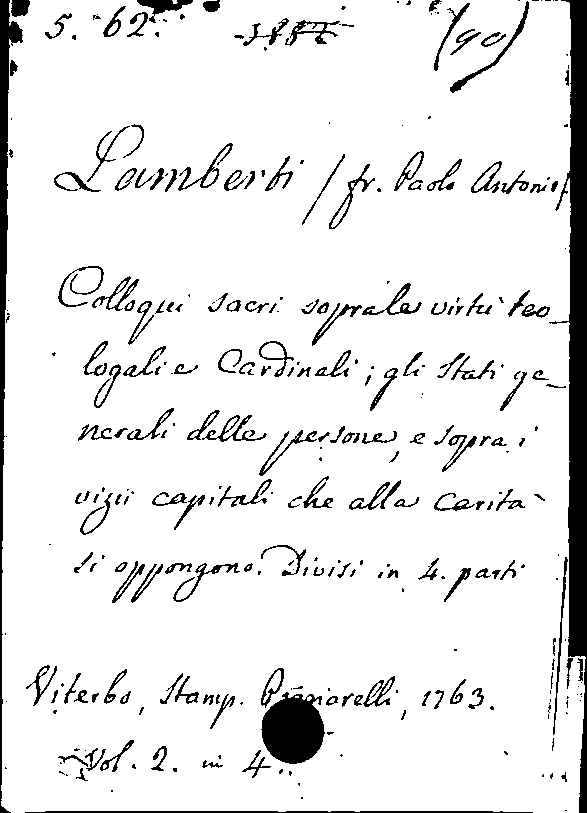 5. 62. (90)
Lamberti / fr. Paolo Antonio/
Colloqui sacri sopra le virtù teo_
logali e Cardinali; gli Stati ge_
nerali delle persone, e sopra i
vizii capitali che alla carità
si oppongono. Divisi in 4. parti
Viterbo, Stamp. 1763.
Vol. 2. in 4..